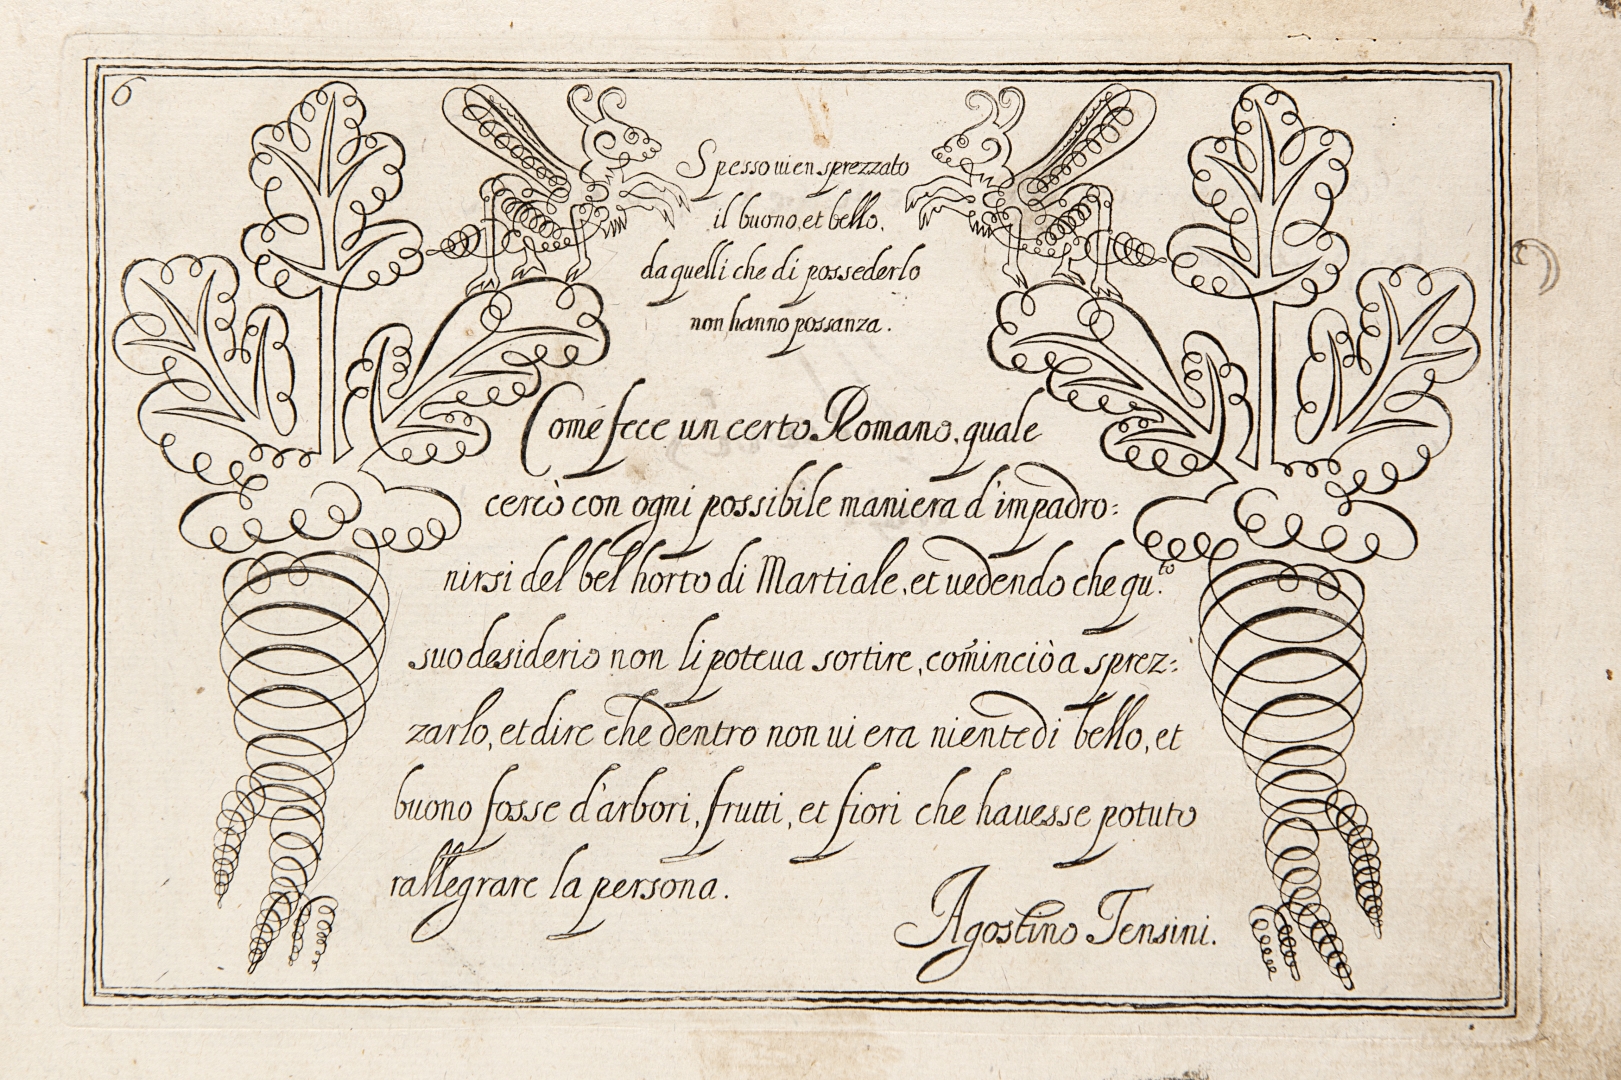 6
Spesso uien sprezzato
il buono, et bello,
da quelli che di possederlo
non hanno possanza.
Come fece un certo Romano, quale
cercò con ogni possibile maniera d'impadro:
nirsi del bel horto di Martiale, et uedendo che qu.to
suo desiderio non li poteua sortire, com̃inciò a sprez:
zarlo, et dire che dentro non ui era niente di bello, et
buono fosse d'arbori, frutti, et fiori che hauesse potuto
rallegrare la persona.
Agostino Tensini.